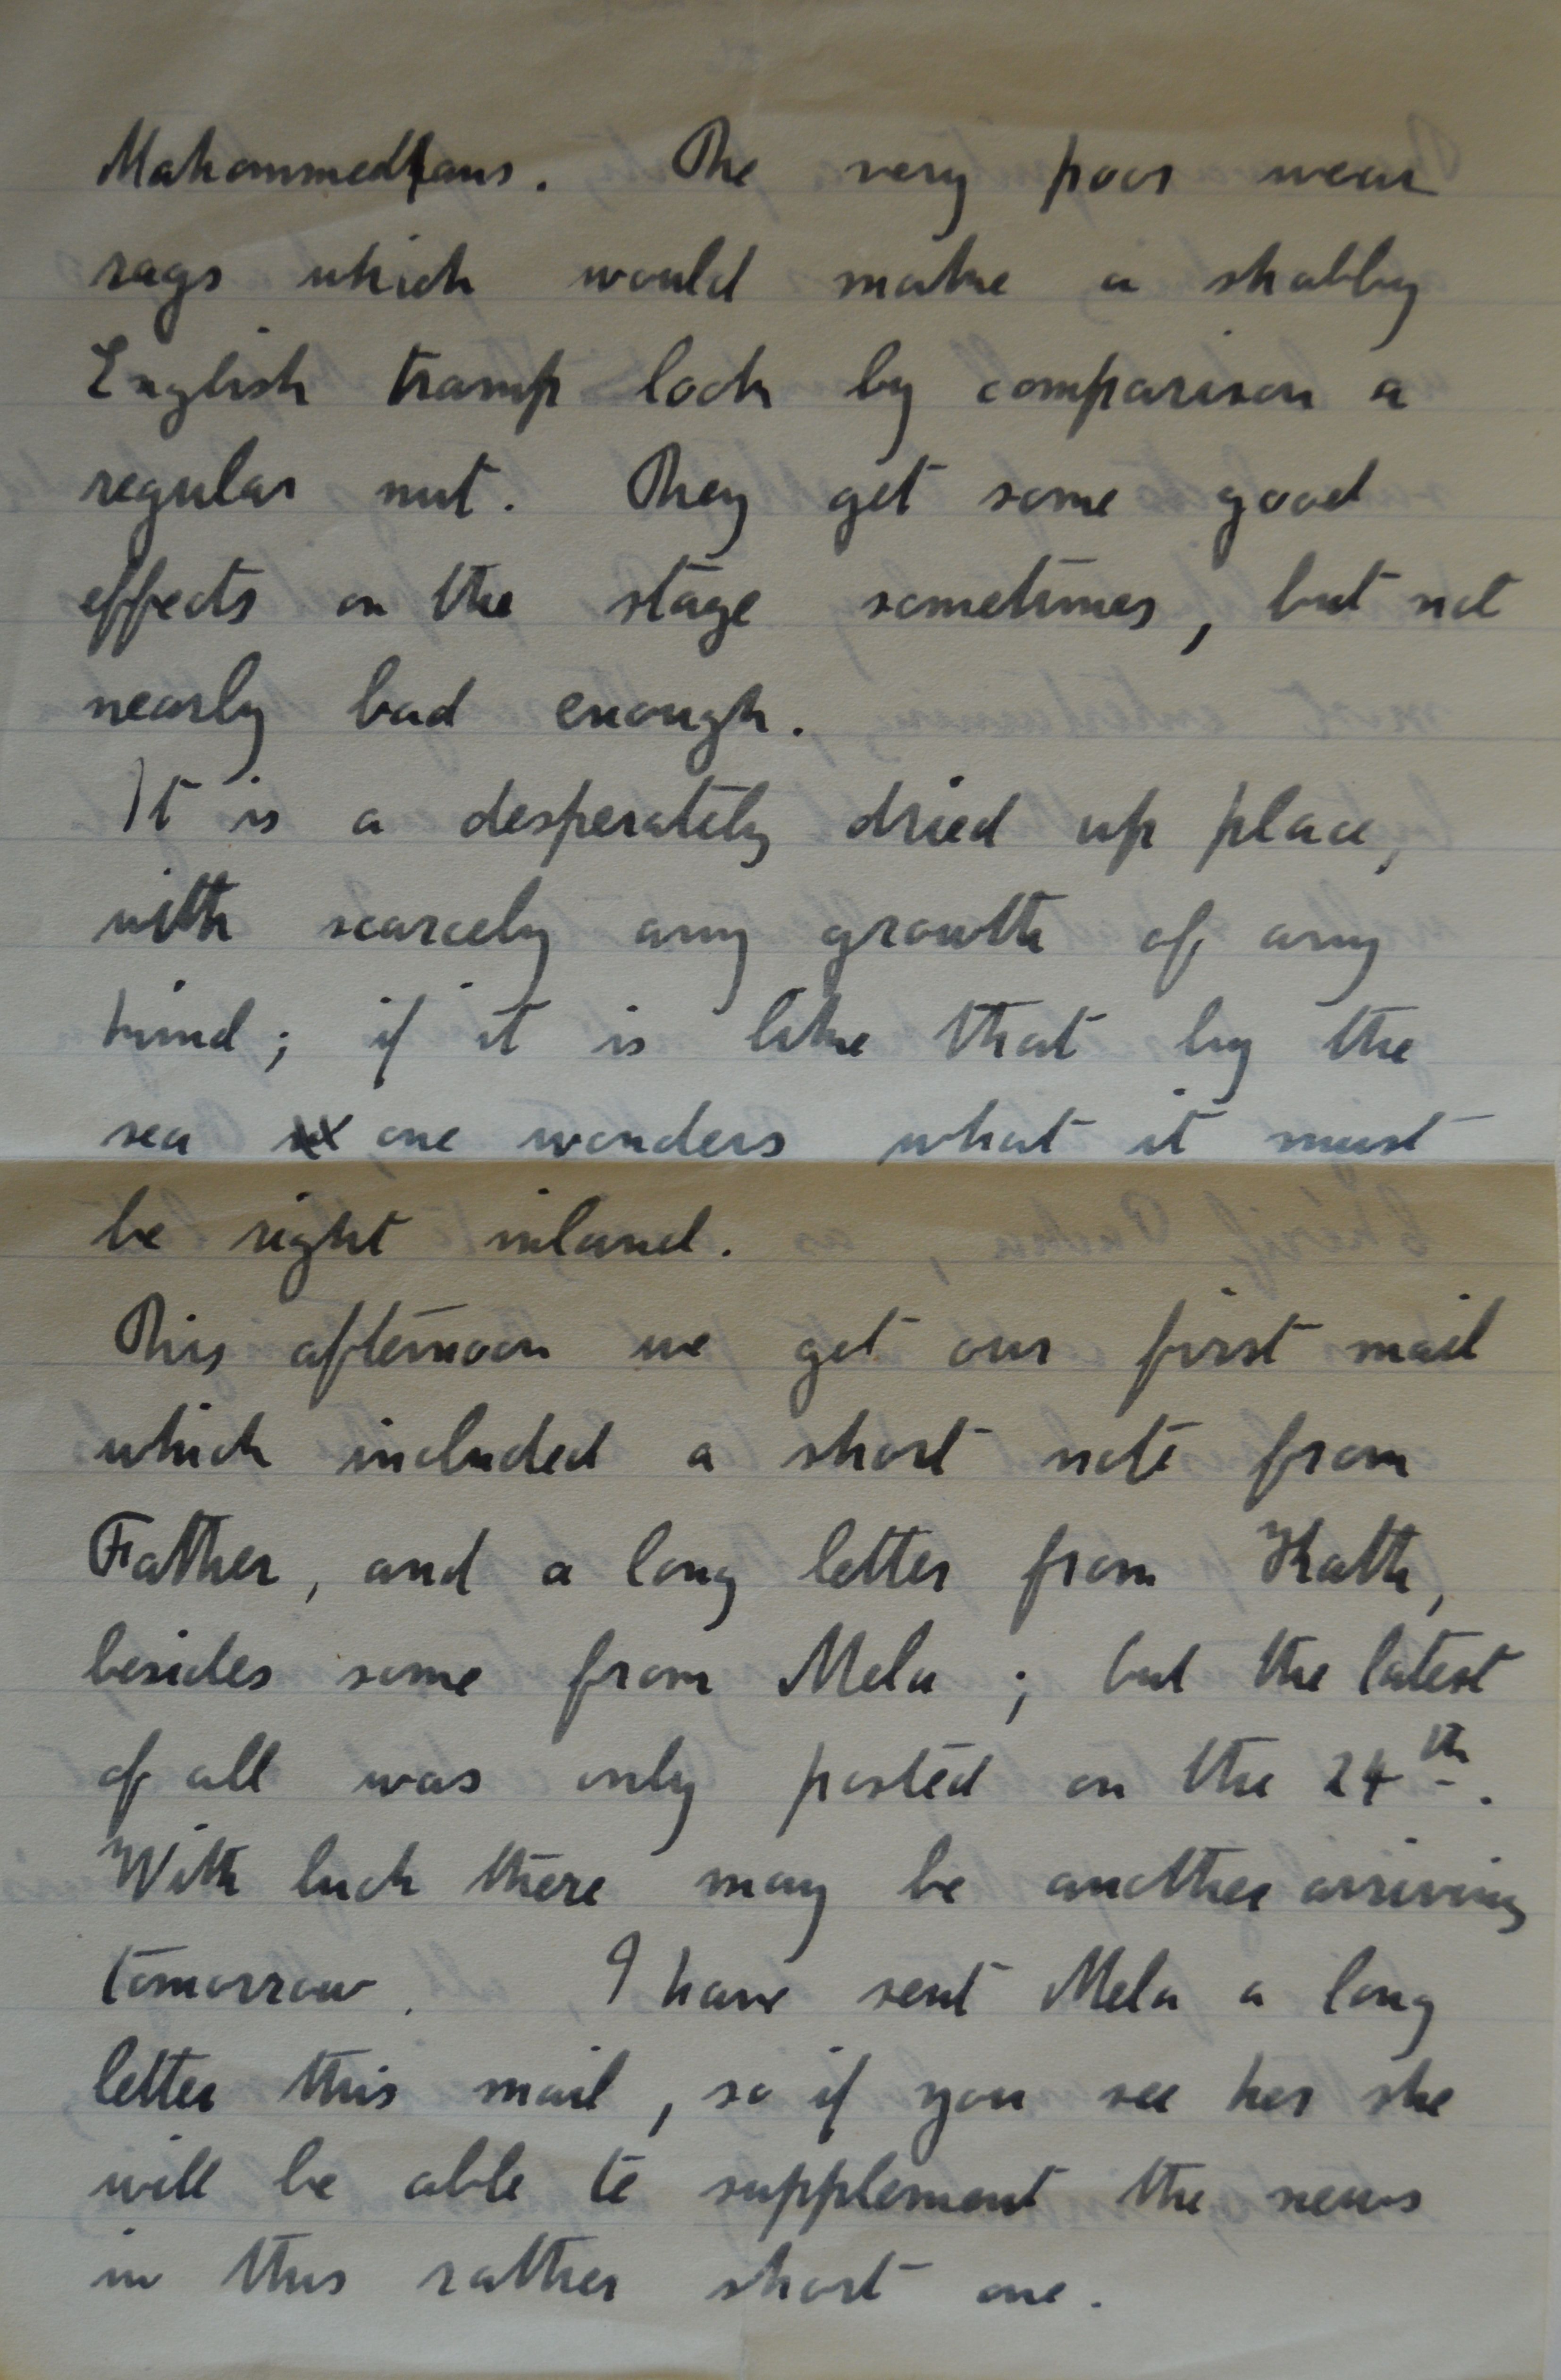 Mahommedans. The very poor wear
rags which would make a shabby
English tramp look by comparison a
regular nut. They get some good
effects on the stage sometimes, but not
nearly bad enough.
It is a desperately dried up place,
with scarcely any growth of any
kind; if it is like that by the
sea, one wonders what it must
be right inland.
This afternoon we got our first mail
which included a short note from
Father, and a long letter from Kath,
besides some from Mela; but the latest
of all was only posted on the 24th.
With luck there may be another arriving
tomorrow. I have sent Mela a long
letter this mail, so if you see her she
will be able to supplement the news
in this rather short one.